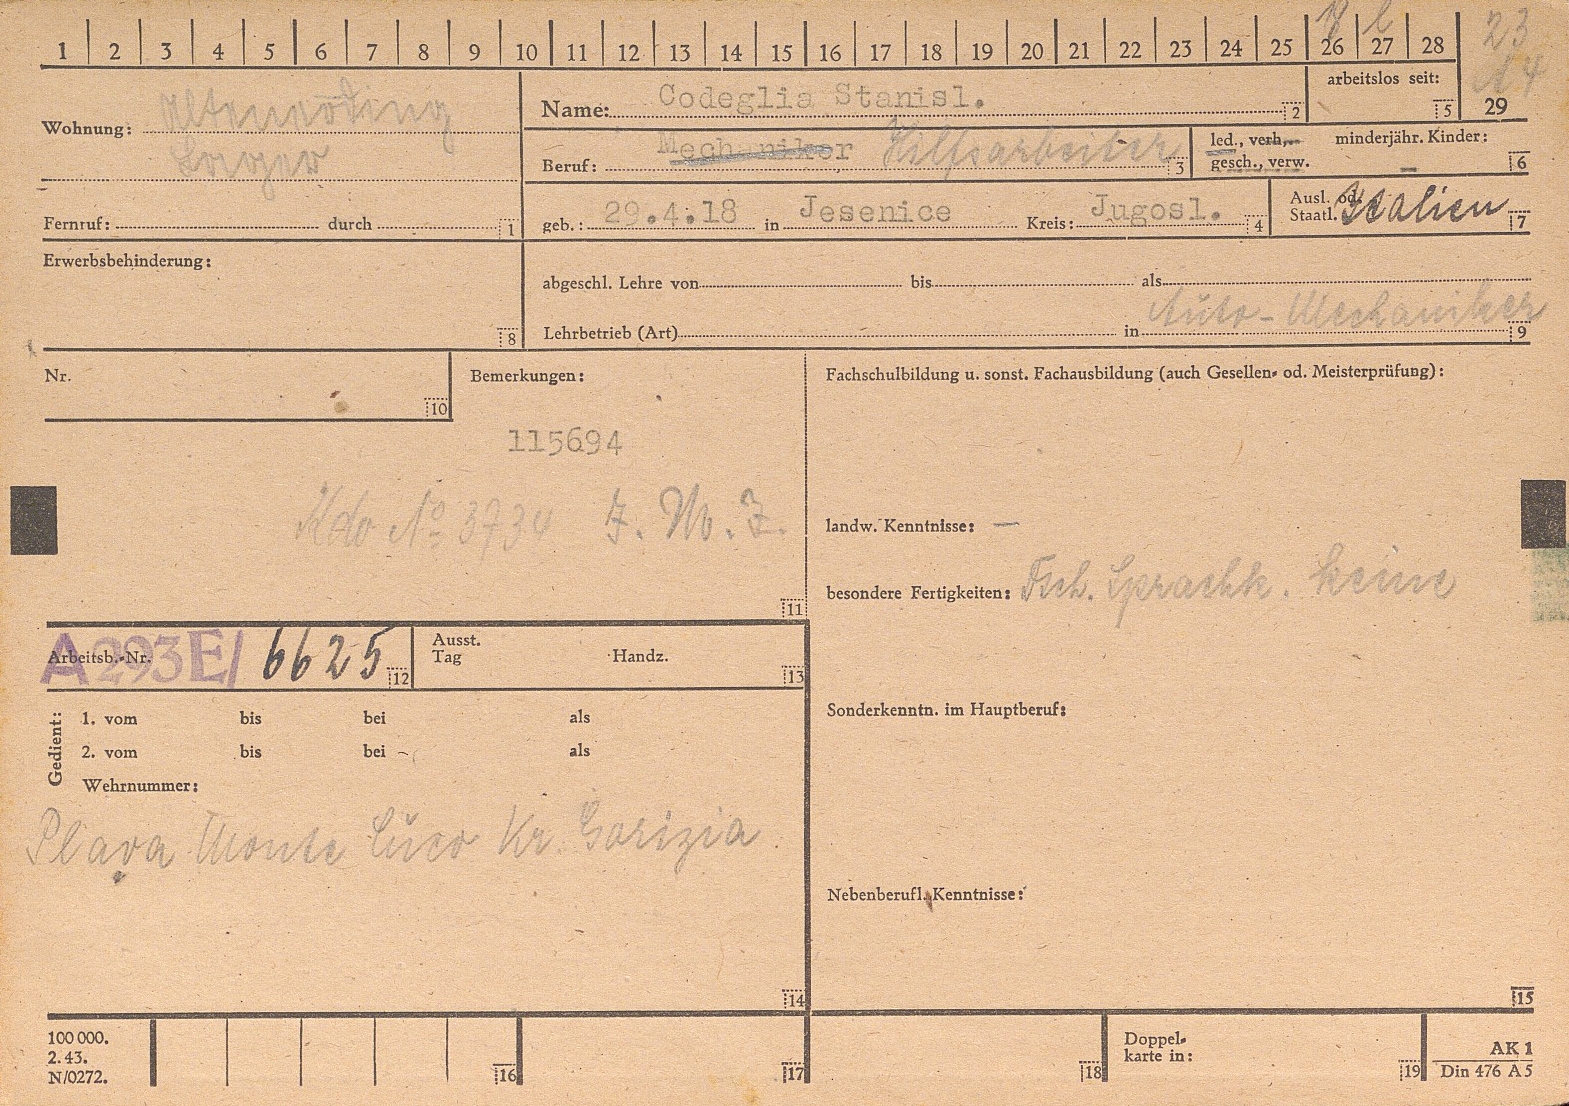 1 2 3 4 5 6 7 8 9 10 11 12 13 14 15 16 17 18 19 20 21 22 23 24 25 26 27 28
23
29
arbeitslos seit: 5
Wohnung:
Lager
Name: Codeglia Stanisl. 2
Beruf: Mechaniker Hilfsarbeiter 3
led., verh., minderjähr. Kinder:
gesch., verw. – 6
Fernruf: durch 1
geb.: 29.4.18 in Jesenice Kreis: Jugosl. 4
Ausl. od.
Staatl. Italien 7
Erwerbsbehinderung:
8
abgeschl. Lehre von bis als
Lehrbetrieb (Art) in Auto-Mechaniker 9
Nr.
10
Bemerkungen:
115694
Kdo No 3734 J. M. J.
11
Fachschulbildung u. sonst. Fachausbildung (auch Gesellen- od. Meisterprüfung):
landw. Kenntnisse: –
besondere Fertigkeiten: Dtsch. Sprachk. keine
Sonderkenntn. im Hauptberuf:
Nebenberufl. Kenntnisse:
15
Arbeitsb.-Nr. A 293E/ 6625 12
Ausst.
Tag Handz. 13
Gedient:
1. vom bis bei als
2. vom bis bei als
Wehrnummer:
Plava Monte Cuco Kr. Gorizia
14
100 000.
2. 43.
N/0272.
16
17
18
Doppel-
karte in:
19
AK 1
Din 476 A5